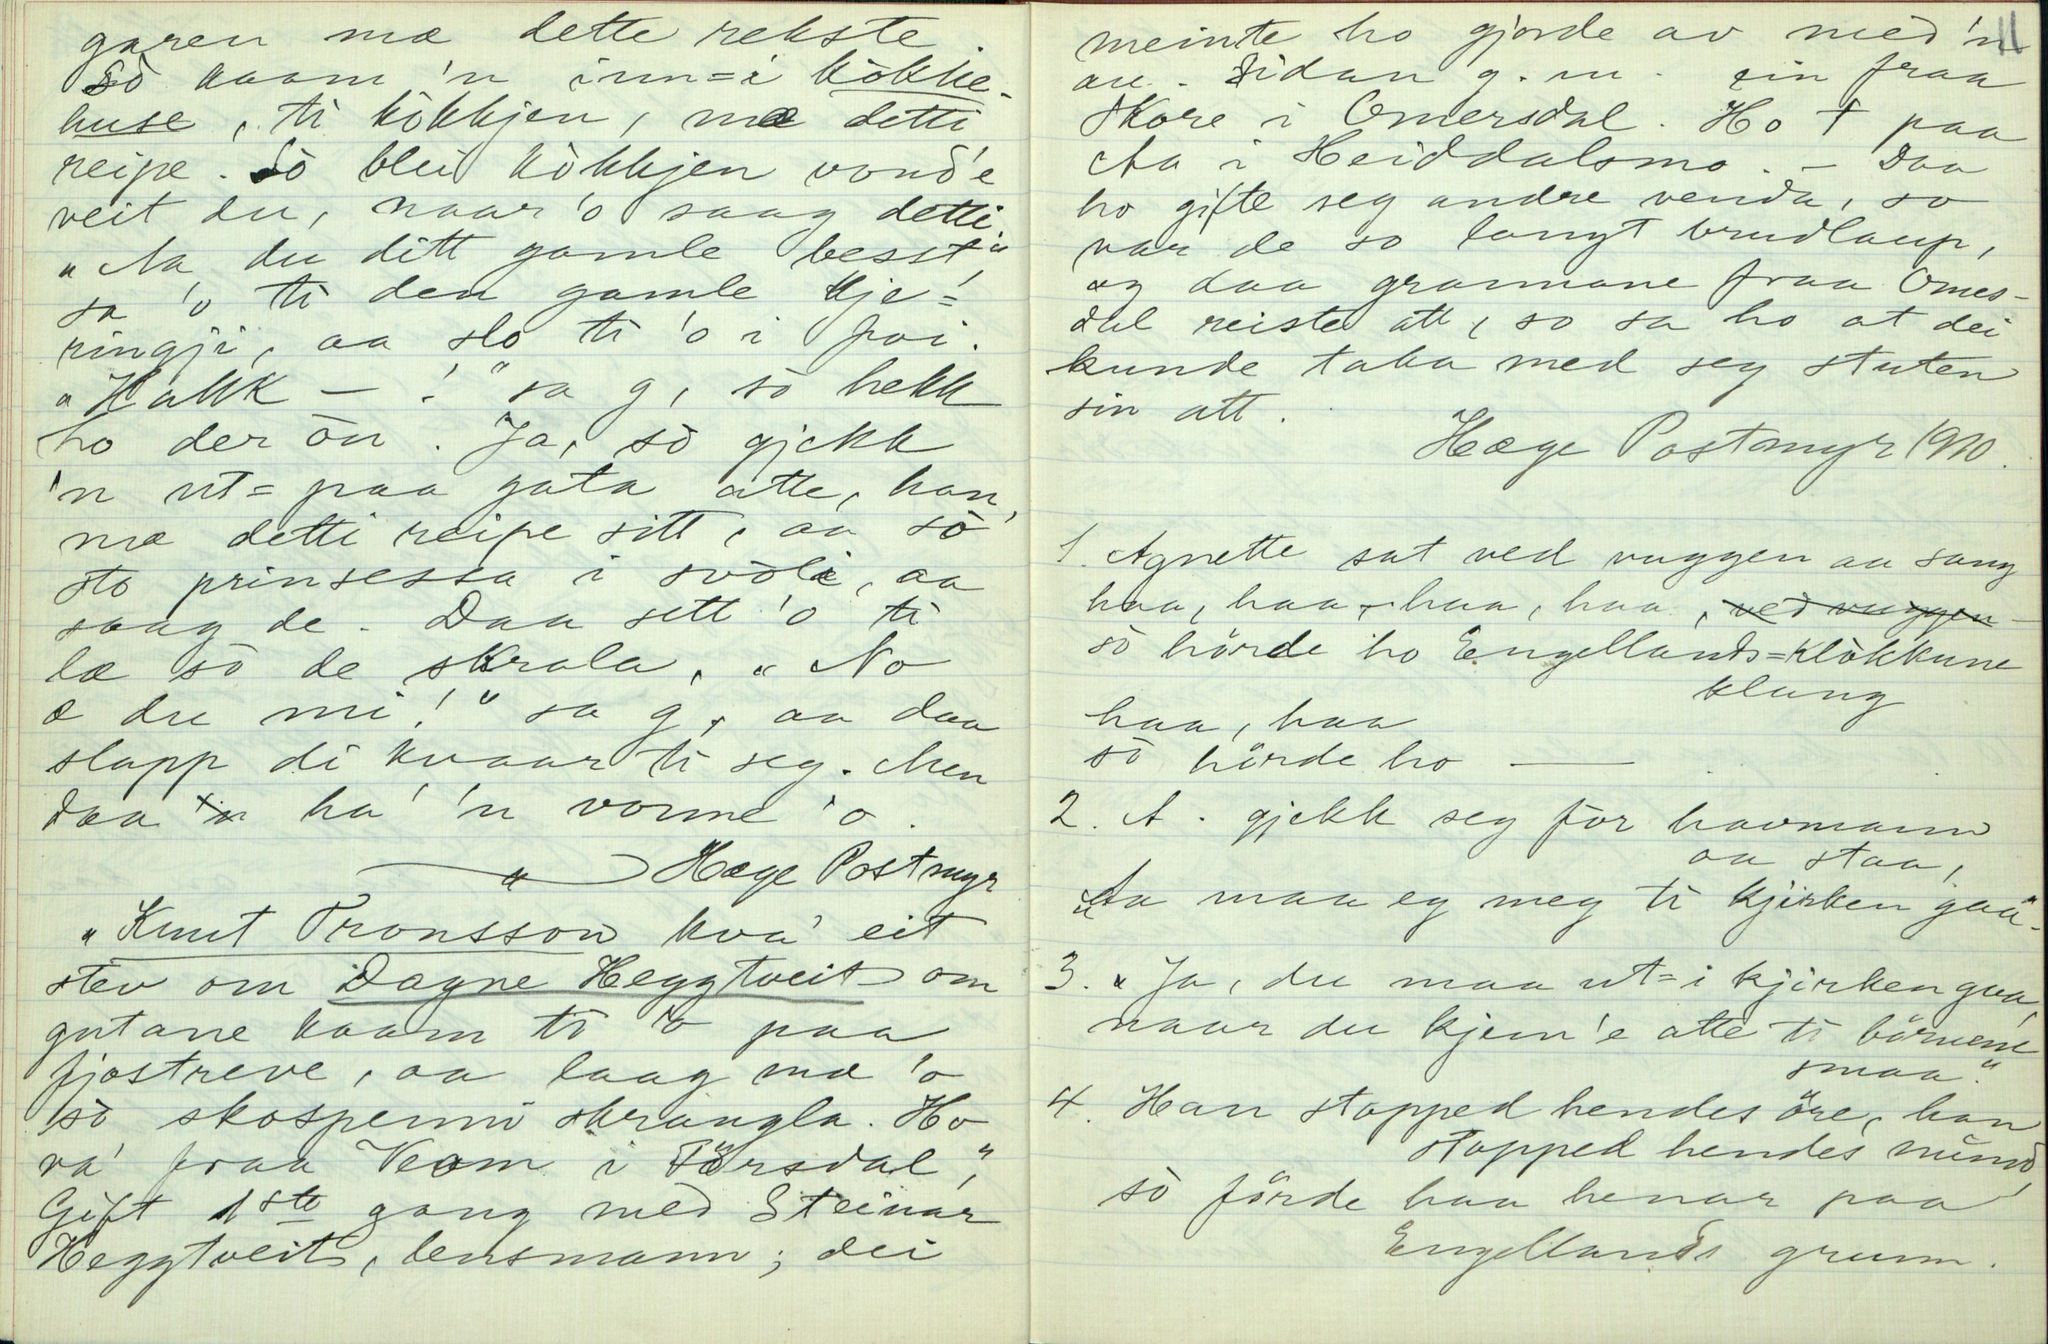 garen mæ dette rekste.
Sò kaam 'n inn=i kòkke-
huse, ti kòkkjen, mæ detti
reipe. Sò blei kòkkjen vond'e
veit du, naar 'o saag detti.
"Aa du ditt gamle besst"
sa 'o ti den gamle kje=
ringji, aa slo ti 'o i foi.
"Hakk — !" sa g, sò hekk
ho der òu. Ja, sò gjekk
'n ut= paa gata atte, han,
mæ detti reipe sitt, aa sò
sto prinsessa i svòli, aa
saag de. Daa sett 'o ti
læ sò de skrala. "No
æ du mi!" sa g, aa daa
slapp di kvaar ti seg. Men
daa ha' 'n vonne 'o.
Hæge Postmyr
"Knut Tronsson kva' eit
stev om Dagne Heggtveit om
gutane kaam ti 'o paa
fjostreve, aa laag mæ 'o
sò skospenni skrangla. Ho
va' fraa Veom i Törsdal",
Gift 1ste gang med Steinar
Heggtveit, lensmann; dei
11
meinte ho gjorde av med 'n
au. Sidan g. m. ein fraa
Skore i Omersdal. Ho † paa
Aa i Heiddalsmo. — Daa
ho gifte seg andre venda, so
var de so langt brudlaup,
og daa grannane fraa Omes-
dal reiste att, so sa ho at dei
kunde taka med seg stuten
sin att.
Hæge Postmyr 1910.
1. Agnette sat ved vuggen aa sang
haa, haa, haa, haa, ved vuggen
sò hörde ho Engellands=klòkkune
klang
haa, haa
sò hörde ho —
2. A. gjekk seg för havmann
aa staa,
"Aa maa eg meg ti kjirken gaa"
3. "Ja, du maa ut=i kjirken gaa,
naar du kjem'e atte ti börnene
smaa."
4. Han stopped hendes öre, han
stopped hendes mund,
sò förde han henar paa
Engellands grunn.